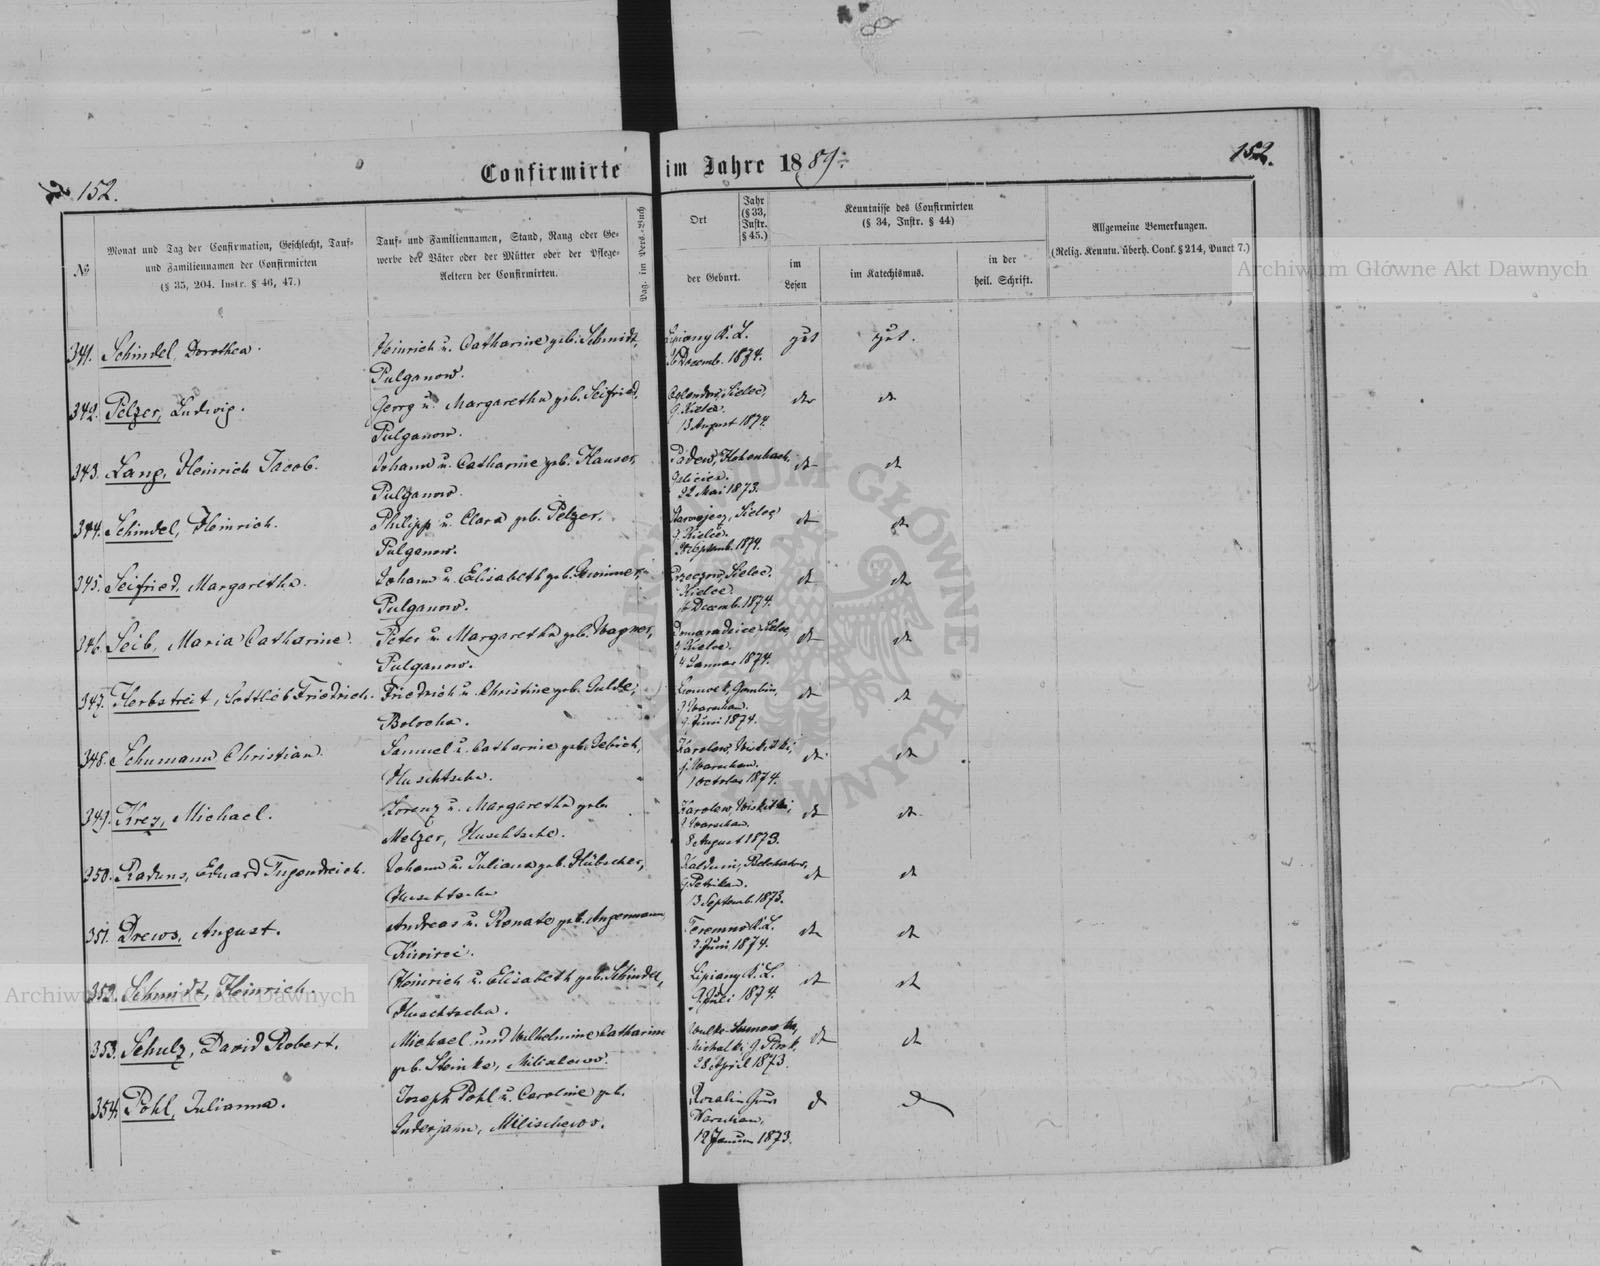 152.
Confirmirte im Jahre 1889.
152.
№
Monat und Tag der Confirmation, Geschlecht, Tauf-
und Familiennamen der Confirmirten
(§ 35, 204. Instr. § 46, 47.)
Tauf- und Familiennamen, Stand, Rang oder Ge-
werbe der Väter oder der Mütter oder der Pflege-
Aeltern der Confirmirten.
Pag. im Pers.-Buch
Ort
Jahr
(§ 33,
Instr.
§ 45.)
der Geburt.
Kenntnisse des Confirmirten
(§ 34, Instr. § 44)
im
Lesen
im Katechismus.
in der
heil. Schrift.
Allgemeine Bemerkungen.
(Relig. Kenntn. überh. Conf. § 214, Punct 7.)
Archiwum Główne Akt Dawnych
341. Schindel, Dorothea.
Heinrich u. Catharine geb. Schmidt,
Pulganow.
Lipiany K. L.
Decemb. 1874.
gut
gut.
342. Pelzer, Ludwig.
Georg u. Margaretha geb. Seifried,
Pulganow.
Sielce,
G. Kielce.
13 August 1874.
343. Lang, Heinrich Jacob.
Johann u. Catharine geb. Hauser,
Pulganow.
Padew, Hohenbach,
Galicien.
22 Mai 1873.
dt
dt
344. Schindel, Heinrich.
Philipp u. Clara geb. Pelzer.
Pulganow.
Sielce
G. Kielce.
Septemb. 1874.
dt
dt
345. Seifried, Margaretha.
Johann u. Elisabeth geb.
Pulganow.
Sielce.
Kielce.
Decemb. 1874.
dt
dt
346. Seib, Maria Catharine.
Peter u. Margaretha geb. Wagner,
Pulganow.
G. Kielce.
4 Januar 1874.
dt
dt
347. Herbstreit, Gottlieb Friedrich.
Friedrich u. Christine geb.
Bolocha.
Gombin,
G. Warschau.
9 Juni 1874.
dt
dt
348. Schumann Christian.
Samuel u. Catharine geb.
Huschtscha.
Karolew, Wiskitki,
G. Warschau.
1 October 1874.
dt
dt
349. Krez, Michael.
Lorenz u. Margaretha geb.
Melzer, Huschtscha.
Karolew, Wiskitki,
G. Warschau.
8 August 1873.
dt
dt
350. Raduns, Eduard Tugendreich.
Johann u. Juliana geb. Hübscher,
Huschtscha
Belchatow,
G. Petrikau.
13 Septemb. 1873.
dt
dt
351. Drews, August.
Andreas u. Renate geb. Angermann
Teremno K. L.
3 Juni 1874.
dt
dt
352. Schmidt, Heinrich.
Heinrich u. Elisabeth geb. Schindel,
Huschtscha.
Lipiany K. L.
1874.
dt
dt
353. Schulz, David Robert.
Michael und Wilhelmine Catharine
geb. Steinke,
28 April 1873.
dt
dt
354. Pohl, Julianna.
Joseph Pohl u. Caroline geb.
Milischewo.
Warschau,
12 Januar 1873.
Archiwum Główne Akt Dawnych
ARCHIWUM GŁÓWNE AKT DAWNYCH